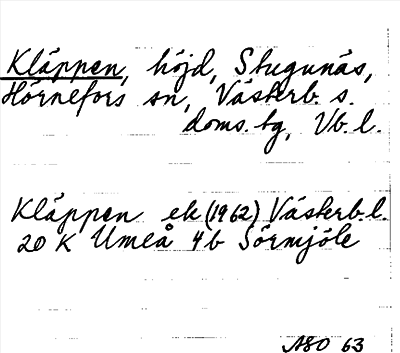 Kläppen, höjd, Stugunäs,
Hörnefors sn, Västerb. s.
doms. tg, Vb. l.
Kläppen ek (1962) Västerb. l.
20 K Umeå 4b Sörmjöle
ASO 63